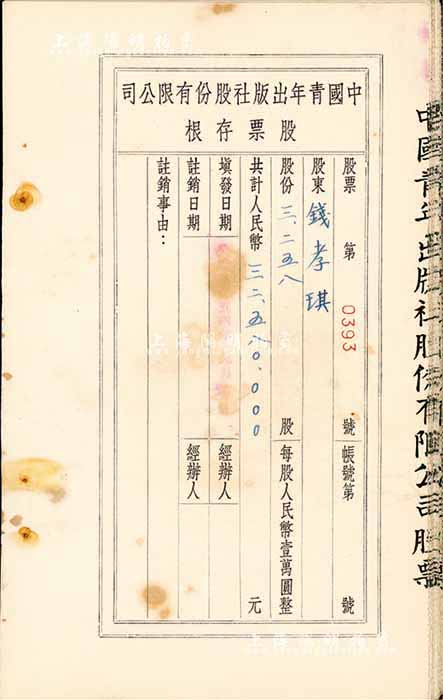 中國青年出版社股份有限公司
股票存根
股票 第 0393 號 帳號第 號
股東 錢孝琪
股份 三.二五八 股 每股人民幣壹萬圓整
共計人民幣 三二.五八〇.〇〇〇 元
填發日期 經辦人
註銷日期 經辦人
註銷事由：
中國青年出版社股份有限公司股票